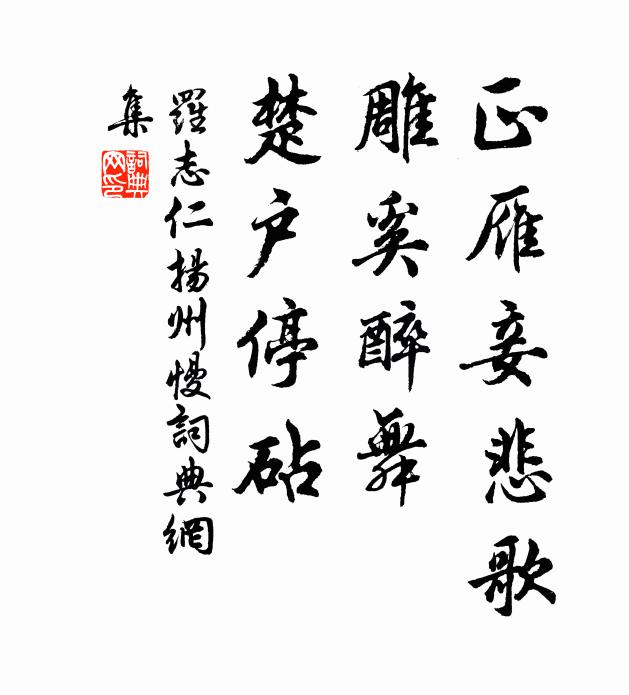 正雁妾悲歌
雕奚醉舞
楚户停砧
羅志仁揚州慢詞典網
集
詞典
网印